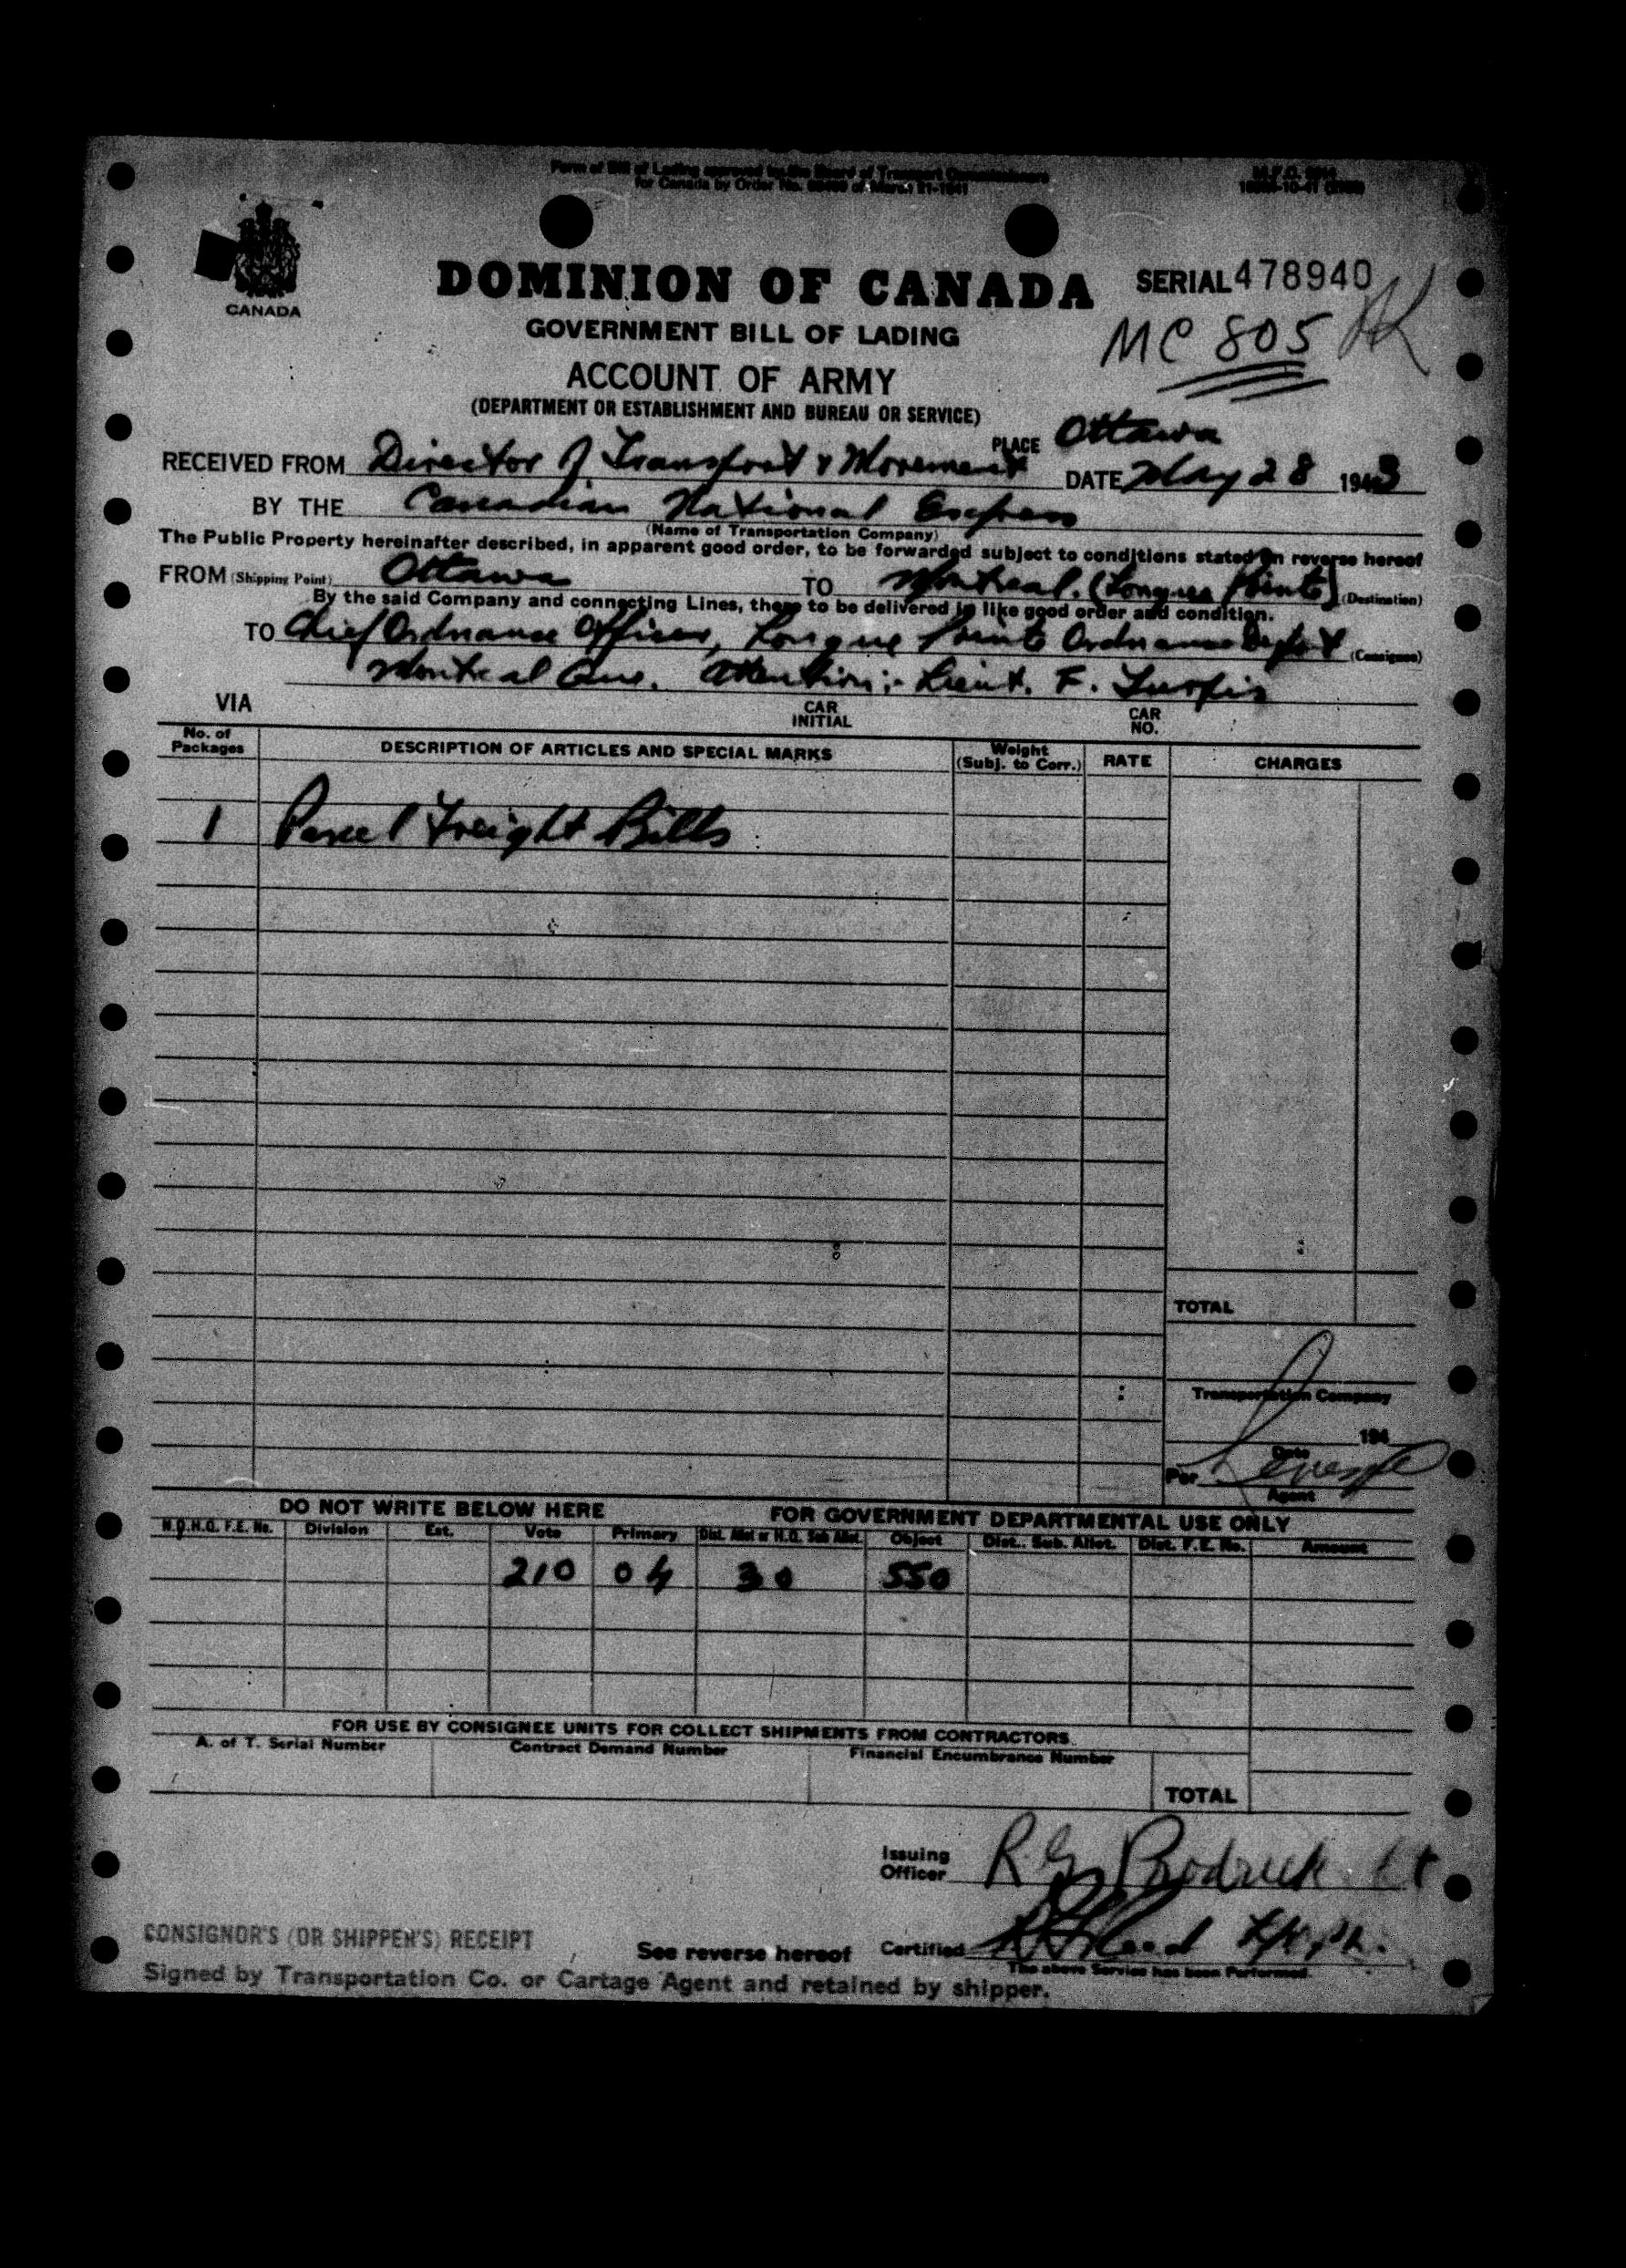 Form of Bill of Lading approved by the Board of Transport Commissioners
for Canada by Order No. of March 21-1941
CANADA
DOMINION OF CANADA
SERIAL 478940
GOVERNMENT BILL OF LADING
MC 805
ACCOUNT OF ARMY
(DEPARTMENT OR ESTABLISHMENT AND BUREAU OR SERVICE)
PLACE Ottawa
RECEIVED FROM Director of Transport & Movement DATE May 28 1943
BY THE Canadian National Express
(Name of Transportation Company)
The Public Property hereinafter described, in apparent good order, to be forwarded subject to conditions stated on reverse hereof
FROM (Shipping Point) Ottawa TO Montreal. (Longue Pointe) (Destination)
By the said Company and connecting Lines, there to be delivered in like good order and condition.
TO Chief Ordnance Officer, Longue Pointe Ordnance Depot (Consignee)
Montreal Que. Attention:- Lieut. F. Turpin
VIA CAR INITIAL CAR NO.
No. of Packages DESCRIPTION OF ARTICLES AND SPECIAL MARKS Weight (Subj. to Corr.) RATE CHARGES
1 Parcel Freight Bills
TOTAL
Transportation Company
194
Date
Per
Agent
DO NOT WRITE BELOW HERE FOR GOVERNMENT DEPARTMENTAL USE ONLY
N.D.H.Q. F.E. No. Division Est. Vote Primary Dist. Allot or H.Q. Sub Allot. Object Dist. Sub. Allot. Dist. F.E. No. Amount
210 04 30 550
FOR USE BY CONSIGNEE UNITS FOR COLLECT SHIPMENTS FROM CONTRACTORS.
A. of T. Serial Number Contract Demand Number Financial Encumbrance Number
TOTAL
Issuing Officer R.G. Brodrick Lt
CONSIGNOR'S (OR SHIPPER'S) RECEIPT
See reverse hereof Certified
The above Service has been Performed.
Signed by Transportation Co. or Cartage Agent and retained by shipper.